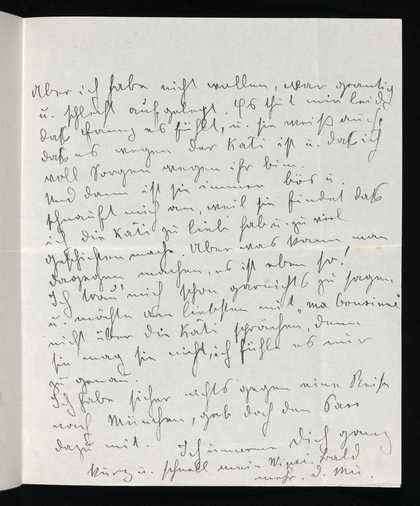 Aber ich habe nicht wollen, war grantig
u. schlecht aufgelegt. Es thut mir leid,
daß Franzl es fühlt, u. sie weiß auch,
daß es wegen der Käti ist u. daß ich
voll Sorgen wegen ihr bin.
Und dann ist sie immer bös u.
schnauft mich an, weil sie findet daß
ich die Käti zu lieb hab u. zu viel
Geschichten mache. Aber was kann man
dagegen machen, es ist eben so!
Ich trau' mich schon garnichts zu sagen
u. möchte am liebsten mit "ma Cousine"
nicht über die Käti sprechen, denn
sie mag sie nicht, ich fühle es nur
zu genau.
Ich habe sicher nichts gegen eine Reise
nach München, gab doch den Pass
dazu mit. Ich umarme Dich ganz
kurz u. schnell mein bald
mehr. d. Mu.